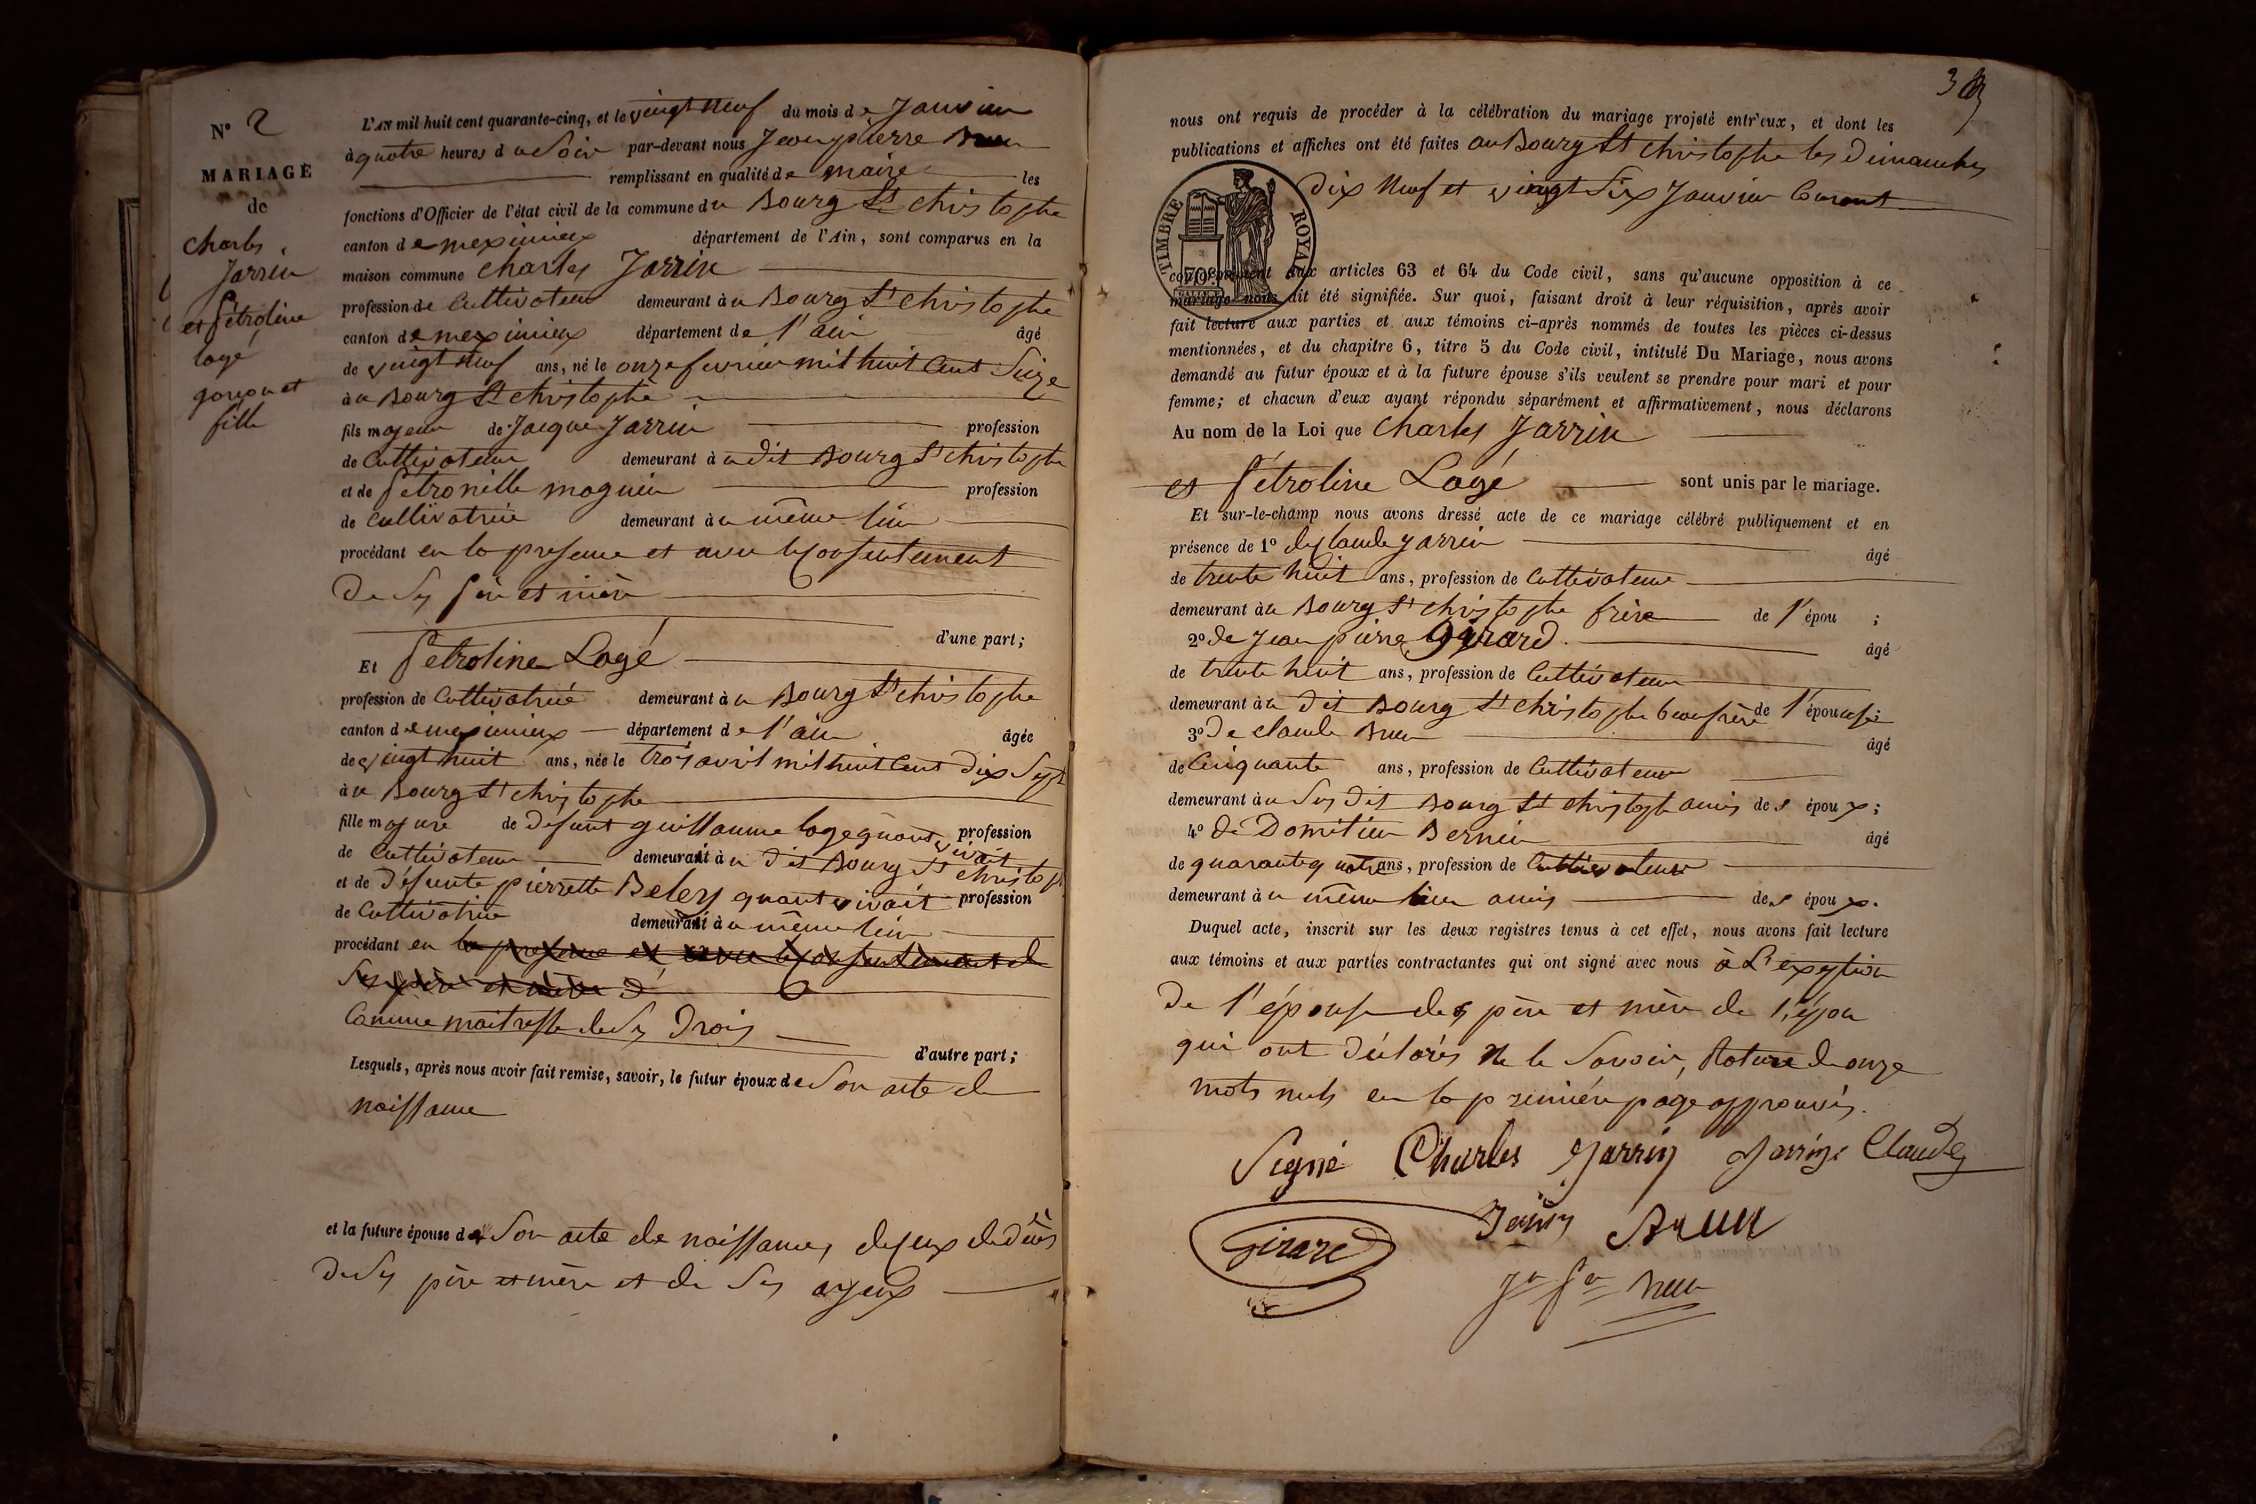 N° 2
MARIAGE
de
Charles
Jarrin
et Pétroline
Logé
garçon et
fille
L'AN mil huit cent quarante-cinq, et le vingt neuf du mois de Janvier
à quatre heures du Soir par-devant nous Jean pierre Brun
remplissant en qualité de maire les
fonctions d'Officier de l'état civil de la commune du Bourg St christophe
canton de meximieux département de l'Ain, sont comparus en la
maison commune Charles Jarrin
profession de Cultivateur demeurant à u Bourg St christophe
canton de meximieux département de l'ain âgé
de vingt neuf ans, né le onze fevrier mil huit Cent Seize
à u Bourg St christophe
fils majeur de Jacque Jarrin profession
de Cultivateur demeurant à u dit Bourg St christophe
et de Pétronille moguin profession
de Cultivatrice demeurant à u même lieu
procédant en la presence et avec le Consentement
De Ses père et mère
d'une part;
Et Pétroline Logé
profession de Cultivatrice demeurant à u Bourg St christophe
canton de meximieux département de l'ain âgée
de vingt huit ans, née le trois avril mil huit Cent Dix Sept
à u Bourg St christophe
fille majeure de Defunt guillaume logé quant vivait profession
de Cultivateur demeurait à u dit Bourg St christophe
et de Défunte pierrette Belley quant vivait profession
de Cultivatrice demeurait à u même lieu
procédant en la presence et avec le Consentement de
Ses père et mère d
Comme maitresse de Ses Drois
d'autre part;
Lesquels, après nous avoir fait remise, savoir, le futur époux de Son acte de
naissance
et la future épouse de Son acte de naissance, de ceux de décès
de Ses père et mère et de Ses ayeux
3
nous ont requis de procéder à la célébration du mariage projeté entr'eux, et dont les
publications et affiches ont été faites au Bourg St christophe les Dimanches
Dix Neuf et vingt Six Janvier Courant
TIMBRE ROYAL
70c
conformément aux articles 63 et 64 du Code civil, sans qu'aucune opposition à ce
mariage nous ait été signifiée. Sur quoi, faisant droit à leur réquisition, après avoir
fait lecture aux parties et aux témoins ci-après nommés de toutes les pièces ci-dessus
mentionnées, et du chapitre 6, titre 5 du Code civil, intitulé Du Mariage, nous avons
demandé au futur époux et à la future épouse s'ils veulent se prendre pour mari et pour
femme; et chacun d'eux ayant répondu séparément et affirmativement, nous déclarons
Au nom de la Loi que Charles Jarrin
et Pétroline Logé sont unis par le mariage.
Et sur-le-champ nous avons dressé acte de ce mariage célébré publiquement et en
présence de 1° de Claude Jarrin âgé
de trente huit ans, profession de Cultivateur
demeurant à u Bourg St christophe frère de l'épou ;
2° de Jean pierre Girard âgé
de trente huit ans, profession de Cultivateur
demeurant à u dit Bourg St christophe beaufrère de l'épouse;
3° De claude Brun âgé
de Cinquante ans, profession de Cultivateur
demeurant à u Sus dit Bourg St christophe amis des époux;
4° de Domitien Bernin âgé
de quarante quatre ans, profession de Cultivateur
demeurant à u même lieu amis des époux.
Duquel acte, inscrit sur les deux registres tenus à cet effet, nous avons fait lecture
aux témoins et aux parties contractantes qui ont signé avec nous à L'exeption
De l'épouse des père et mère de l'épou
qui ont déclarés Ne le Savoir, Rature de onze
mots nuls en la premiére page approuvés.
Signé Charles Jarrin Jarrin Claude
Girard Brun
Jn Pre Brun